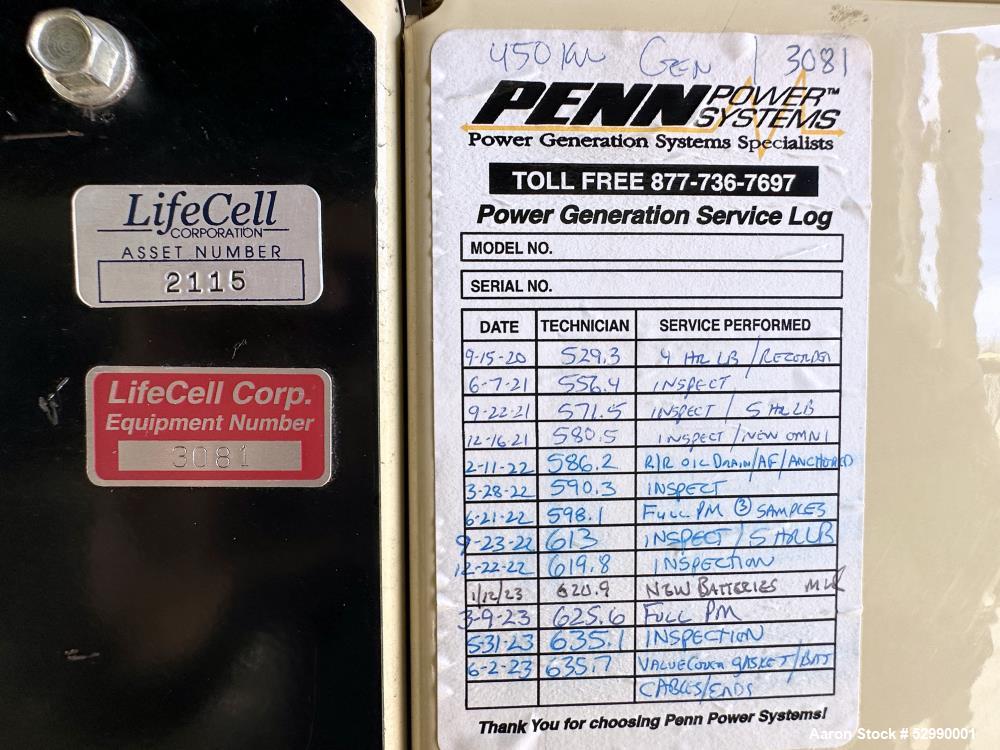 LifeCell
CORPORATION
ASSET NUMBER
2115
LifeCell Corp.
Equipment Number
3081
450 KW GEN 1 3081
PENN POWER SYSTEMS™
Power Generation Systems Specialists
TOLL FREE 877-736-7697
Power Generation Service Log
MODEL NO.
SERIAL NO.
DATE TECHNICIAN SERVICE PERFORMED
9-15-20 529.3 4 HR LB / RECORDED
6-7-21 556.4 INSPECT
9-22-21 571.5 INSPECT / 5 HR LB
12-16-21 580.5 INSPECT / NEW OMNI
2-11-22 586.2 R/R OIL DRAIN/AF/ANCHORED
3-28-22 590.3 INSPECT
6-21-22 598.1 FULL PM ③ SAMPLES
9-23-22 613 INSPECT / 5 HR LB
12-22-22 619.8 INSPECTION
1/12/23 620.9 NEW BATTERIES
3-9-23 625.6 FULL PM
5-31-23 635.1 INSPECTION
6-2-23 635.7 VALVE COVER GASKET/BAT
CABLES/ENDS
Thank You for choosing Penn Power Systems!
Aaron Stock # 52990001